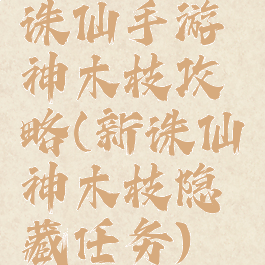 诛仙手游
神木枝攻
略(新诛仙
神木枝隐
藏任务)